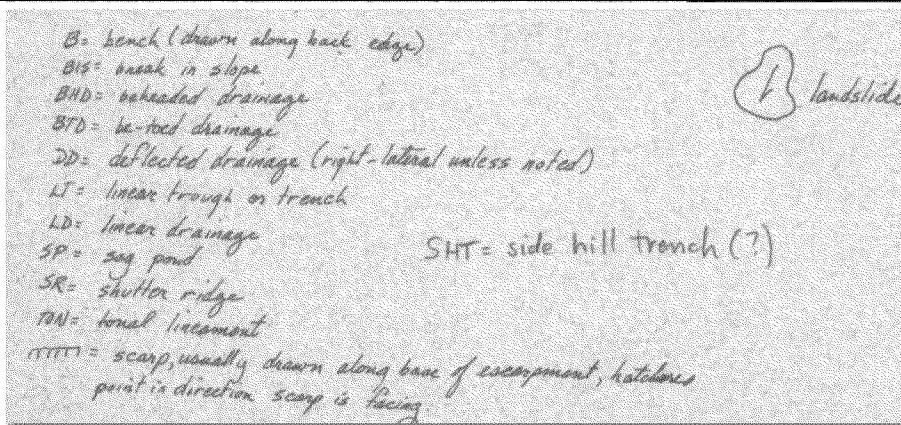 B= bench (drawn along back edge)
BIS= break in slope
BHD= beheaded drainage
BTD= be-toed drainage
DD= deflected drainage (right-lateral unless noted)
LT= linear trough or trench
LD= linear drainage
SP= sag pond
SR= shutter ridge
TON= tonal lineament
= scarp, usually drawn along base of escarpment, hatchures
point in direction scarp is facing.
L landslide
SHT= side hill trench (?)